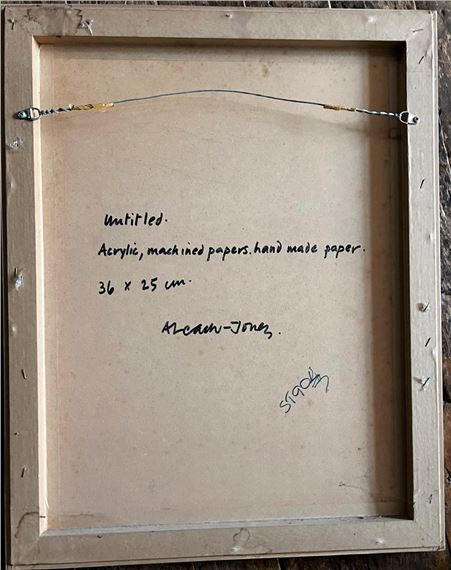 Untitled.
Acrylic, machined papers. hand made paper.
36 x 25 cm.
ALeach-Jones.
STOCK